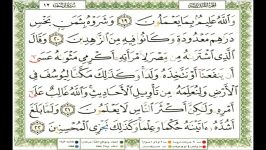 وَٱللَّهُ عَلِيمُۢ بِمَا يَعۡمَلُونَ ١٩ وَشَرَوۡهُ بِثَمَنِۭ بَخۡسٖ
دَرَٰهِمَ مَعۡدُودَةٖ وَكَانُواْ فِيهِ مِنَ ٱلزَّٰهِدِينَ ٢٠ وَقَالَ
ٱلَّذِي ٱشۡتَرَىٰهُ مِن مِّصۡرَ لِٱمۡرَأَتِهِۦٓ أَكۡرِمِي مَثۡوَىٰهُ عَسَىٰٓ
أَن يَنفَعَنَآ أَوۡ نَتَّخِذَهُۥ وَلَدٗاۚ وَكَذَٰلِكَ مَكَّنَّا لِيُوسُفَ فِي
ٱلۡأَرۡضِ وَلِنُعَلِّمَهُۥ مِن تَأۡوِيلِ ٱلۡأَحَادِيثِۚ وَٱللَّهُ غَالِبٌ عَلَىٰٓ
أَمۡرِهِۦ وَلَٰكِنَّ أَكۡثَرَ ٱلنَّاسِ لَا يَعۡلَمُونَ ٢١ وَلَمَّا بَلَغَ
أَشُدَّهُۥٓ ءَاتَيۡنَٰهُ حُكۡمٗا وَعِلۡمٗاۚ وَكَذَٰلِكَ نَجۡزِي ٱلۡمُحۡسِنِينَ ٢٢